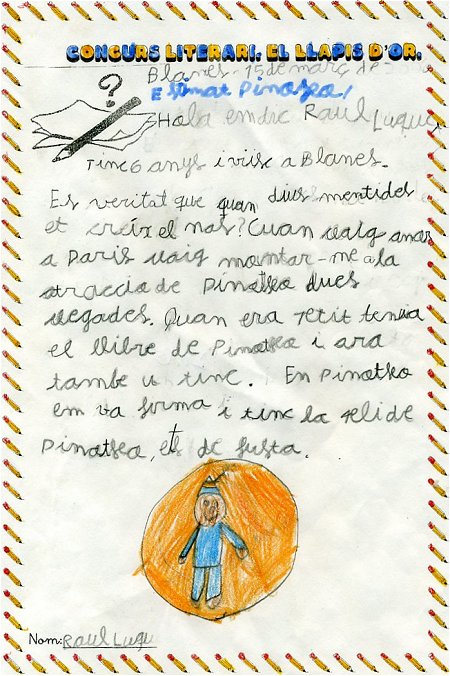 CONCURS LITERARI. EL LLAPIS D'OR.
Blanes - 15 de març de
Estimat Pinotxo,
Hola em dic Raul Luque,
Tinc 6 anys i visc a Blanes.
Es veritat que quan dius mentides
et creix el nas? Cuan vaig anar
a Paris vaig montar-me a la
atraccio de Pinotxo dues
vegades. Quan era Petit tenia
el llibre de Pinotxo i ara
tambe u tinc. En Pinotxo
em va firma i tinc la peli de
Pinotxo, ets de fusta.
Nom: Raul Luqu